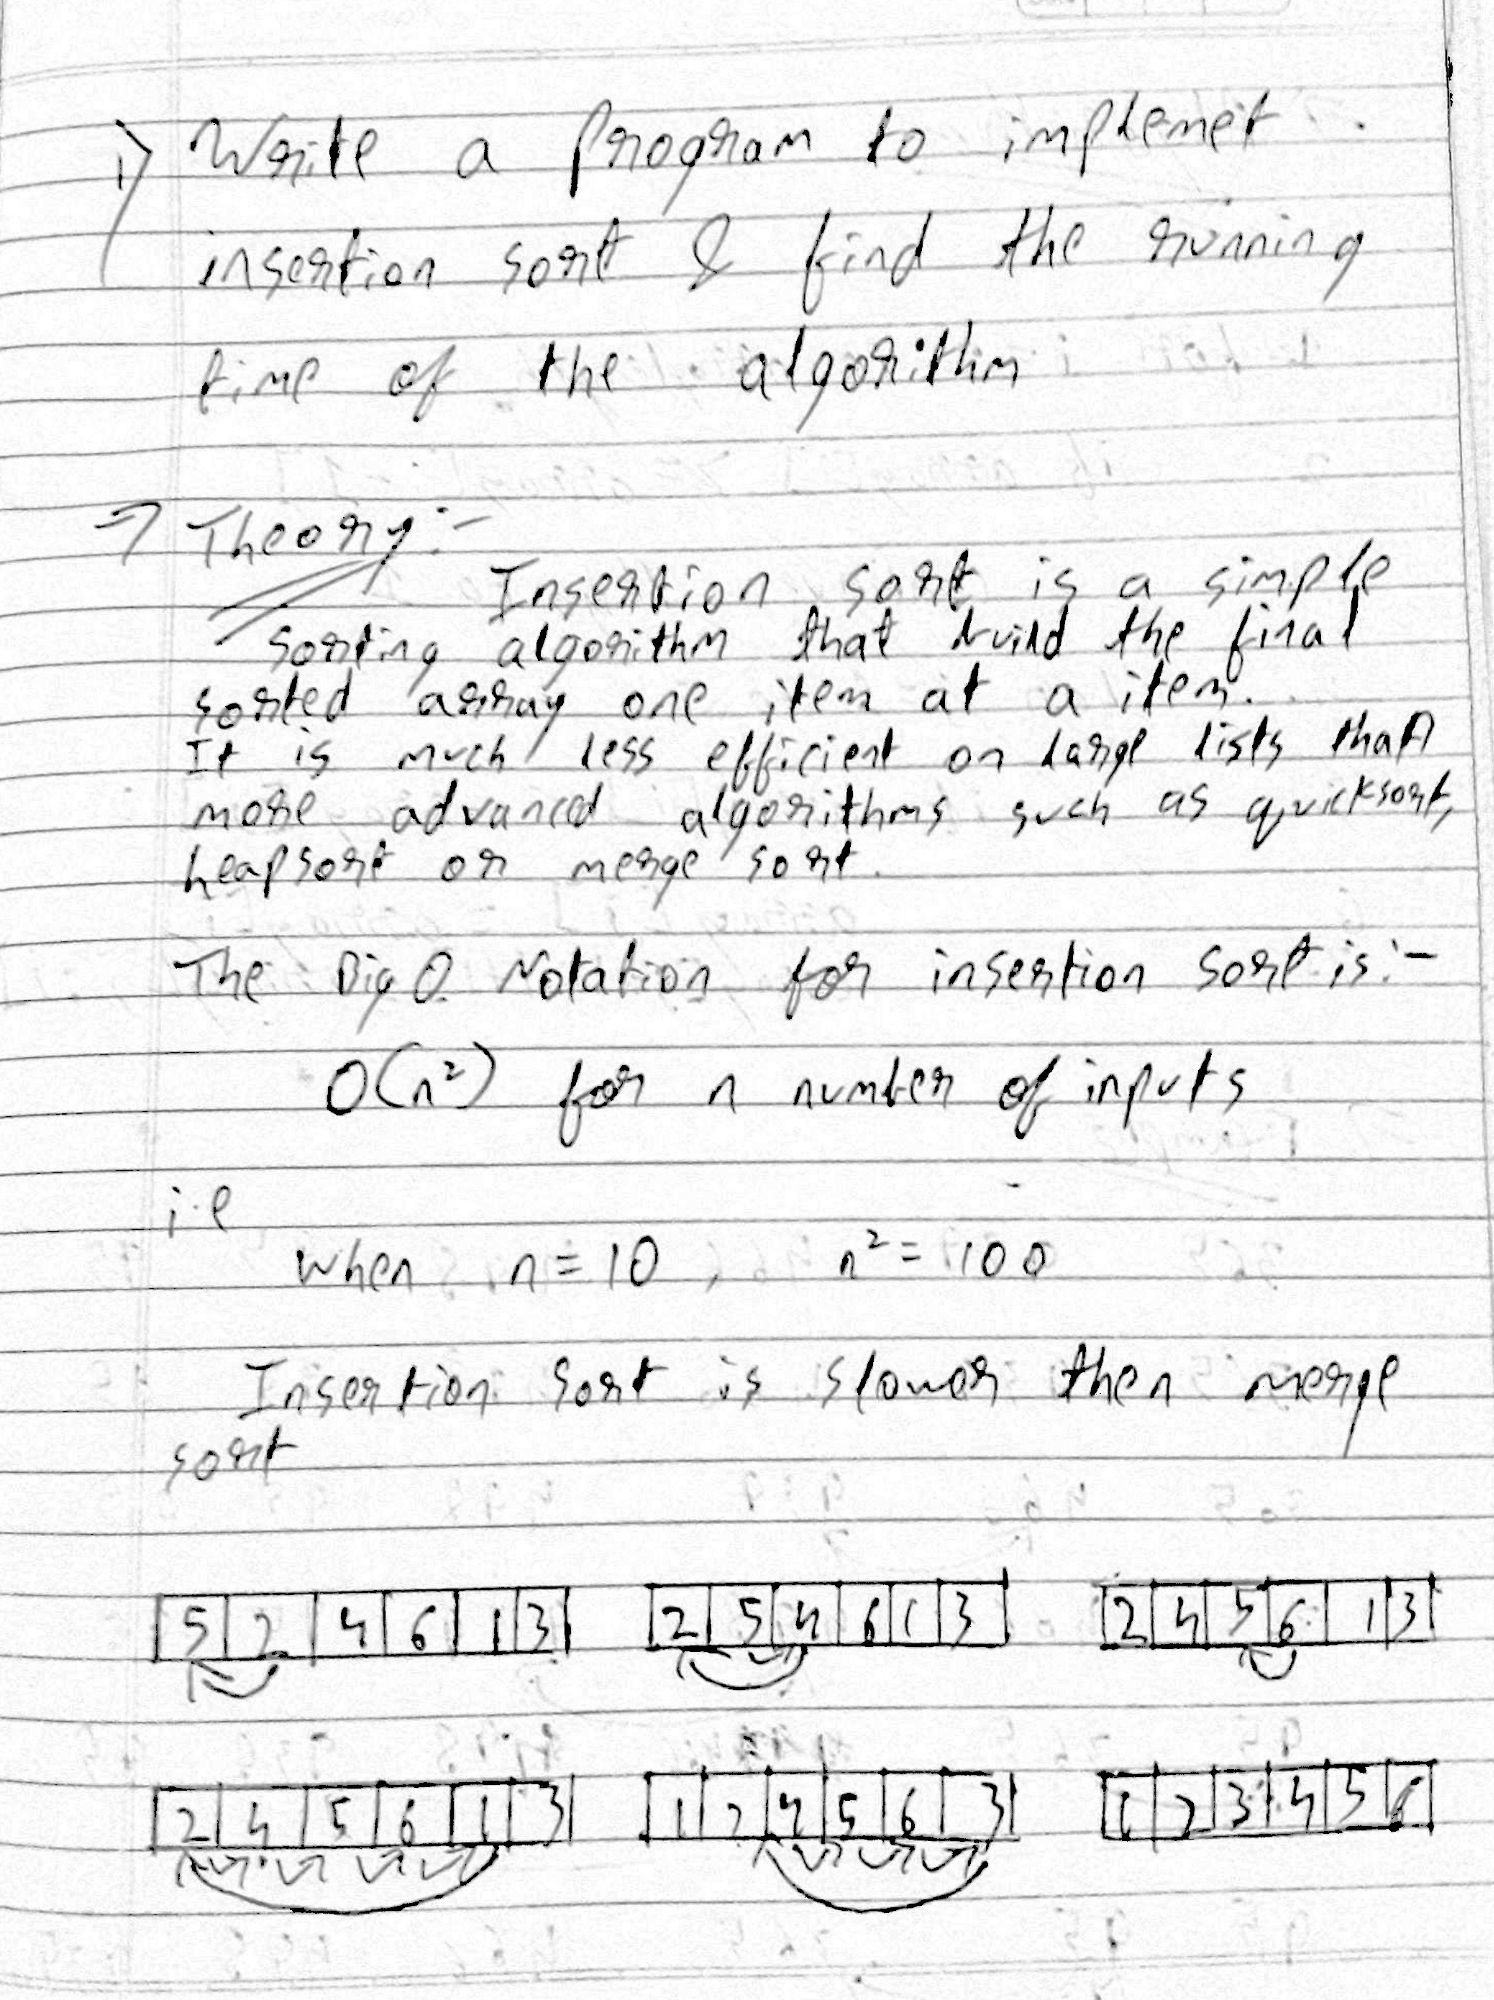 1) Write a program to implemet
insertion sort & find the running
time of the algorithm
⇒ Theory:-
Insertion sort is a simple
sorting algorithm that build the final
sorted array one item at a item.
It is much less efficient on large lists than
more advanced algorithms such as quicksort,
heapsort or merge sort.
The Big O Notation for insertion sort is:-
O(n²) for n number of inputs
i.e
when n = 10, n² = 100
Insertion sort is slower then merge
sort
5 2 4 6 1 3 2 5 4 6 1 3 2 4 5 6 1 3
2 4 5 6 1 3 1 2 4 5 6 3 1 2 3 4 5 6